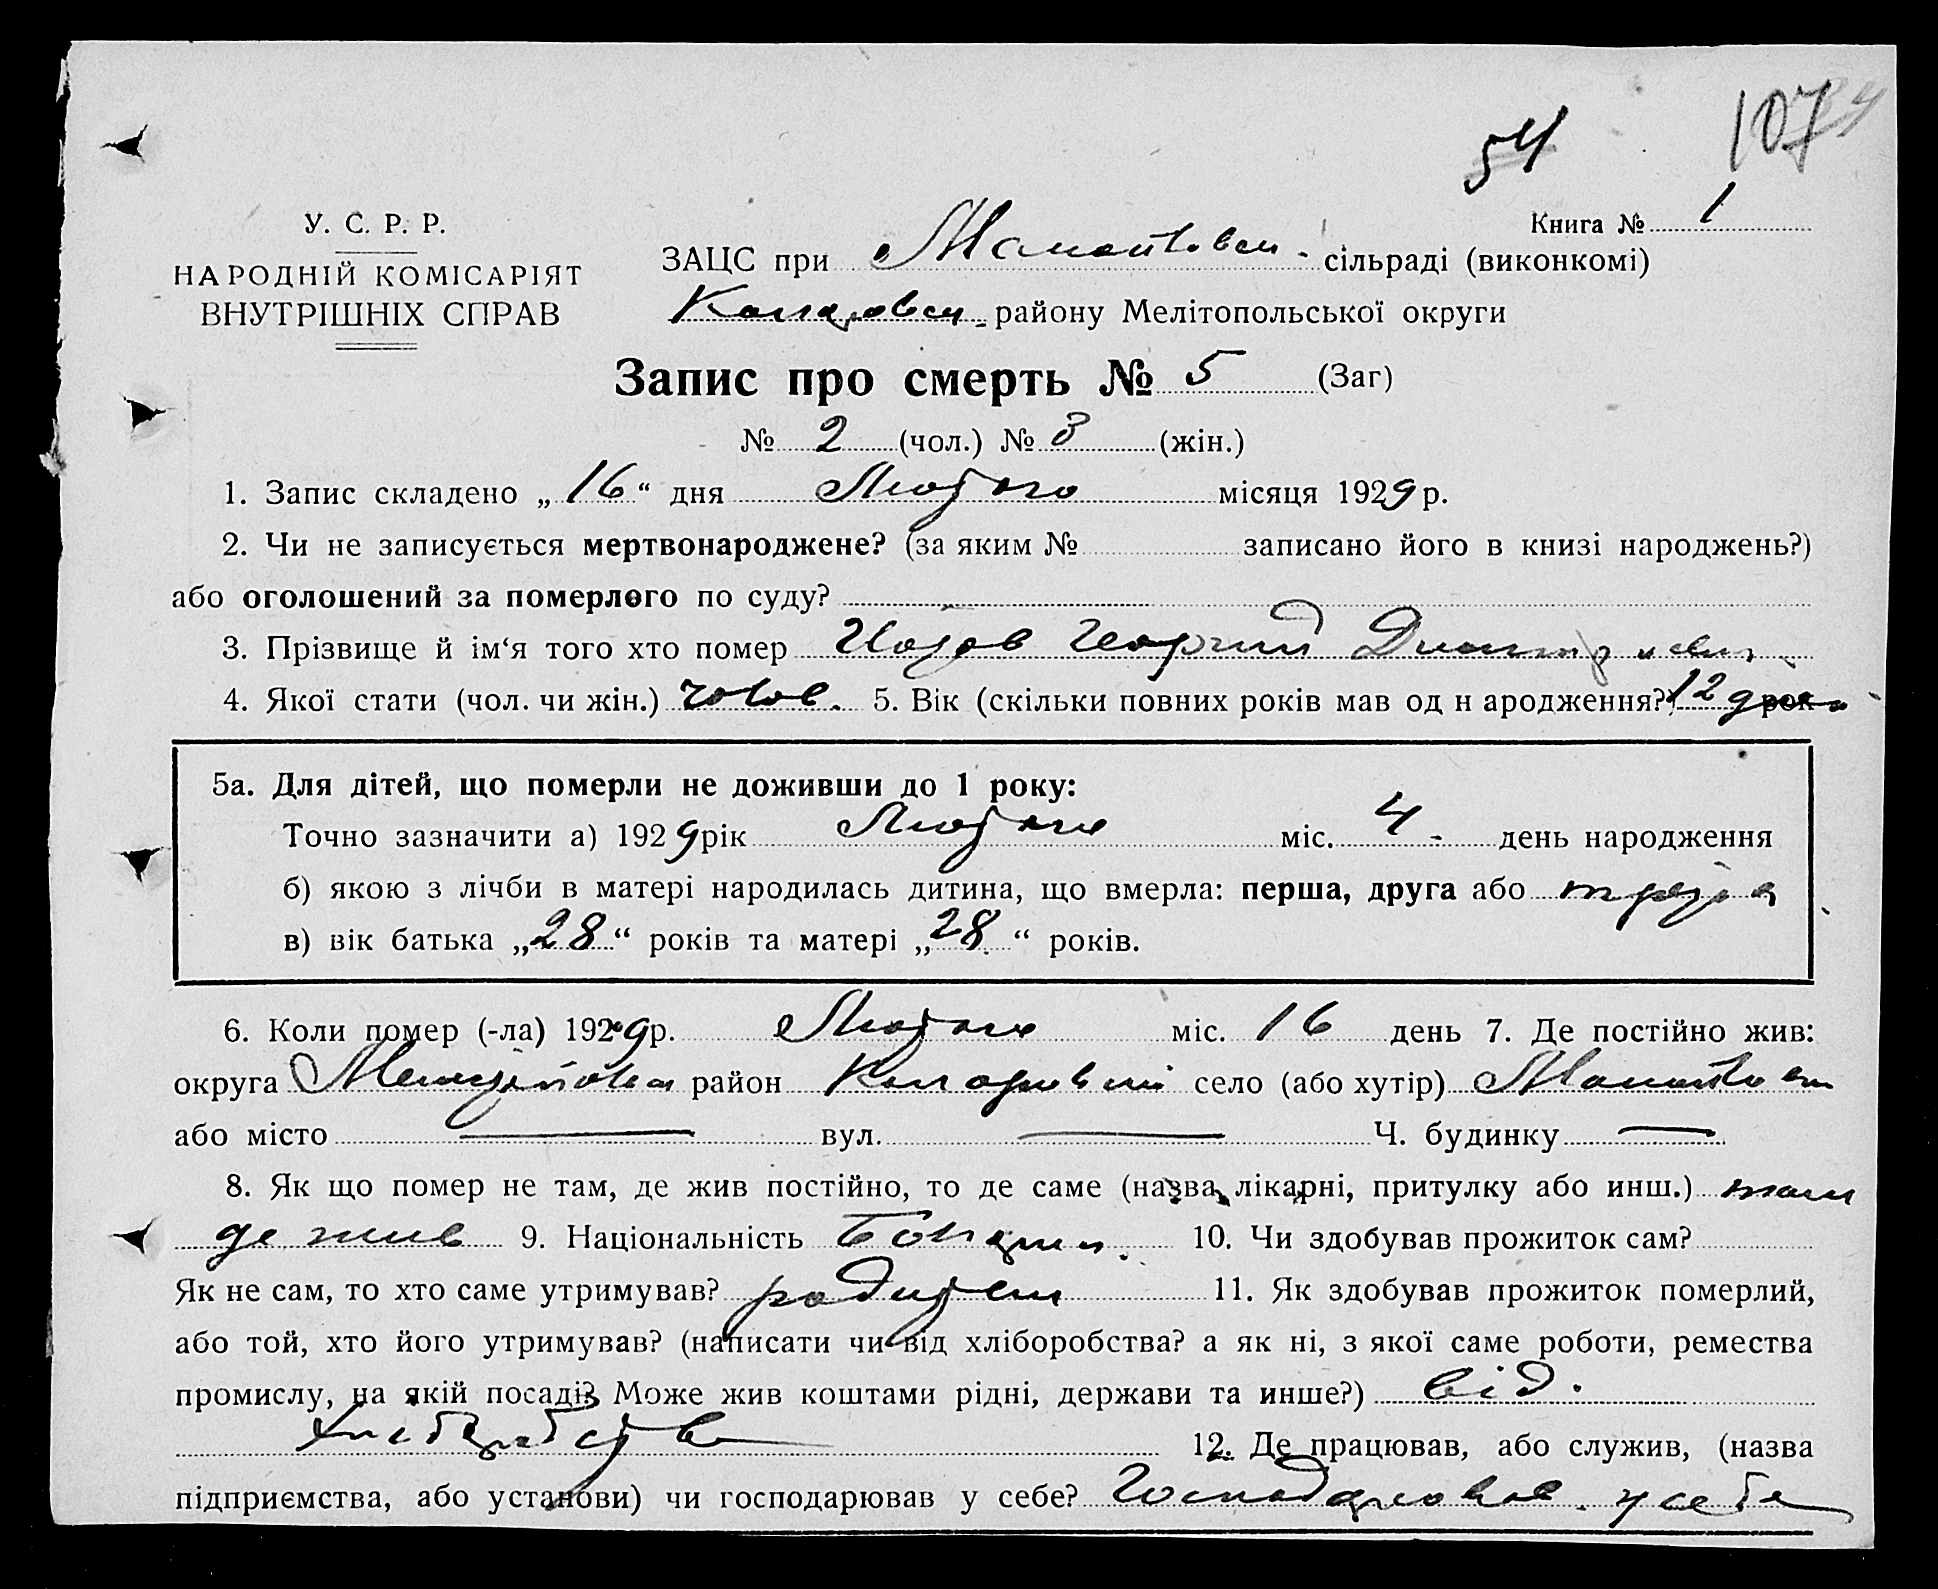 107
54
У. С. Р. Р.
Книга № 1
НАРОДНІЙ КОМІСАРІЯТ
ВНУТРІШНІХ СПРАВ
ЗАЦС при сільраді (виконкомі)
району Мелітопольської округи
Запис про смерть № 5 (Заг)
№ 2 (чол.) № 3 (жін.)
1. Запис складено „16“ дня Лютого місяця 1929 р.
2. Чи не записується мертвонароджене? (за яким № записано його в книзі народжень?)
або оголошений за померлого по суду?
3. Прізвище й ім‘я того хто помер Георгий
4. Якої стати (чол. чи жін.) чолов. 5. Вік (скільки повних років мав од н ародження?) 12 рок
5а. Для дітей, що померли не доживши до 1 року:
Точно зазначити а) 1929 рік Лютого міс. 4 день народження
б) якою з лічби в матері народилась дитина, що вмерла: перша, друга або
в) вік батька „28“ років та матері „28“ років.
6. Коли помер (-ла) 1929 р. Лютого міс. 16 день 7. Де постійно жив:
округа район село (або хутір)
або місто — вул. — Ч. будинку —
8. Як що помер не там, де жив постійно, то де саме (назва лікарні, притулку або инш.) там
де жив 9. Національність 10. Чи здобував прожиток сам?
Як не сам, то хто саме утримував? 11. Як здобував прожиток померлий,
або той, хто його утримував? (написати чи від хліборобства? а як ні, з якої саме роботи, ремества
промислу, на якій посаді? Може жив коштами рідні, держави та инше?) від
12. Де працював, або служив, (назва
підприємства, або установи) чи господарював у себе? Господарював у себе